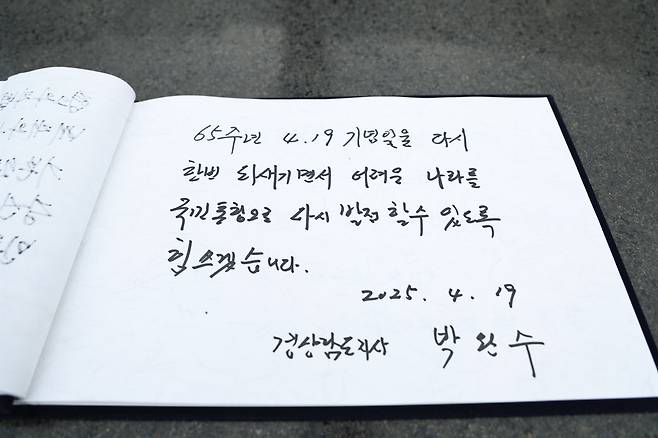 65주년 4.19 기념일을 다시
한번 되새기면서 어려운 나라를
국민통합으로 다시 발전 할수 있도록
힘쓰겠습니다.
2025. 4. 19
경상남도지사 박완수